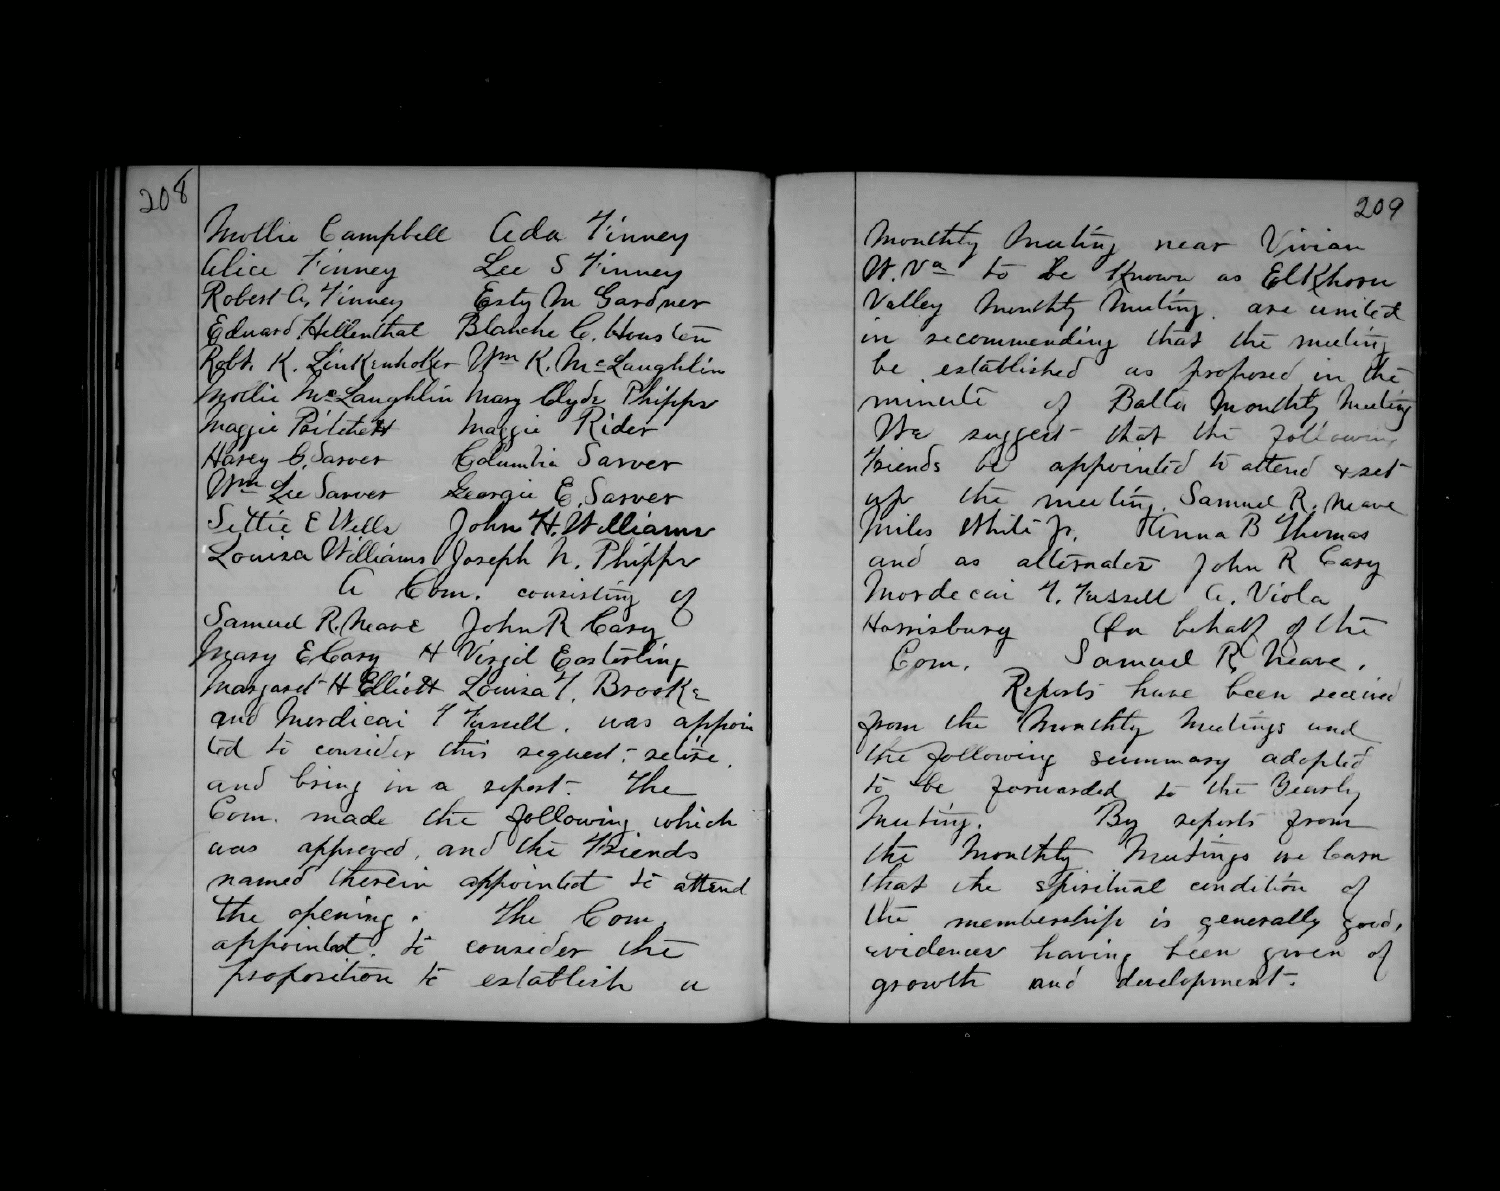 208
Mollie Campbell Ada Finney
Alice Finney Lee S Finney
Robert A. Finney Esty M Gardner
Edward Hellenthal Blanche C. Housten
Robt. K. Linkenhoker Wm K. McLaughlin
Mollie McLaughlin Mary Clyde Phipps
Maggie Maggie Rider
Harey C. Sarver Columbia Sarver
Wm Lee Sarver Georgie E. Sarver
Settie E Wells John H. Williams
Louisa Williams Joseph N. Phipps
A Com. consisting of
Samuel R. Neave John R Cary
Mary E Cary H Virgil Easterling
Margaret H Elliott Louisa T. Brooke
and Mordicai T Fussell. was appoin
ted to consider this request, retire.
and bring in a report. The
Com. made the following which
was approved, and the Friends
named therein appointed to attend
the opening. The Com.
appointed to consider the
proposition to establish a
209
Monthly Meeting near Vivian
W. Va to be known as Elkhorn
Valley Monthly Meeting. are united
in recommending that the meeting
be established as proposed in the
minute of Balto Monthly Meeting
We suggest that the following
Friends be appointed to attend & set
up the meeting. Samuel R. Neave
Miles White Jr. B Thomas
and as alternates John R Cary
Mordecai T. Fussell A. Viola
Horrisburg On behalf of the
Com. Samuel R. Neave.
Reports have been received
from the Monthly Meetings and
the following summary adopted
to be forwarded to the Yearly
Meeting. By reports from
the Monthly Meetings we learn
that the spiritual condition of
the membership is generally good,
evidences having been given of
growth and development.